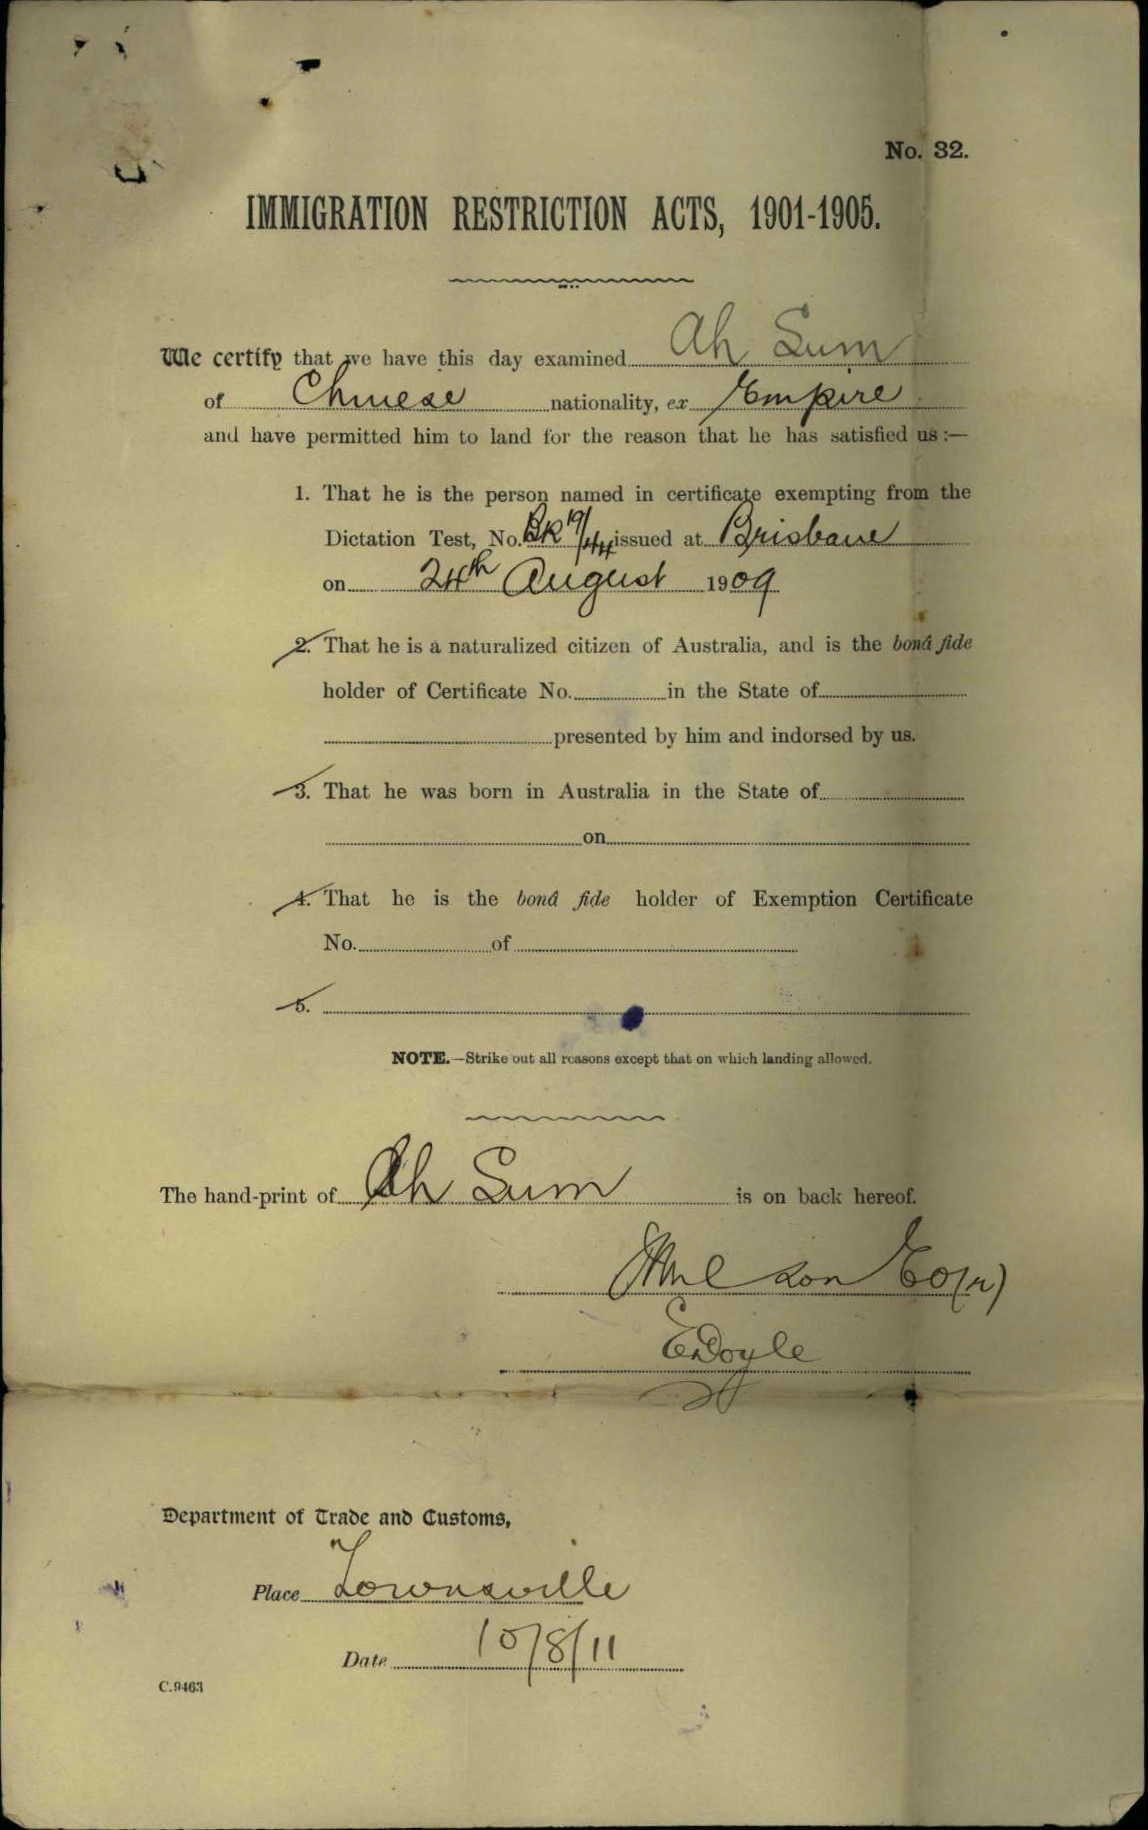 No. 32.
IMMIGRATION RESTRICTION ACTS, 1901-1905.
We certify that we have this day examined Ah Sum
of Chinese nationality, ex Empire
and have permitted him to land for the reason that he has satisfied us :—
1. That he is the person named in certificate exempting from the
Dictation Test, No. BK 19/44 issued at Brisbane
on 24th August 1909
2. That he is a naturalized citizen of Australia, and is the bonâ fide
holder of Certificate No. in the State of
presented by him and indorsed by us.
3. That he was born in Australia in the State of
on
4. That he is the bonâ fide holder of Exemption Certificate
No. of
5.
NOTE.—Strike out all reasons except that on which landing allowed.
The hand-print of Ah Sum is on back hereof.
EDoyle
Department of Trade and Customs,
Place Townsville
Date 10/8/11
C.9463